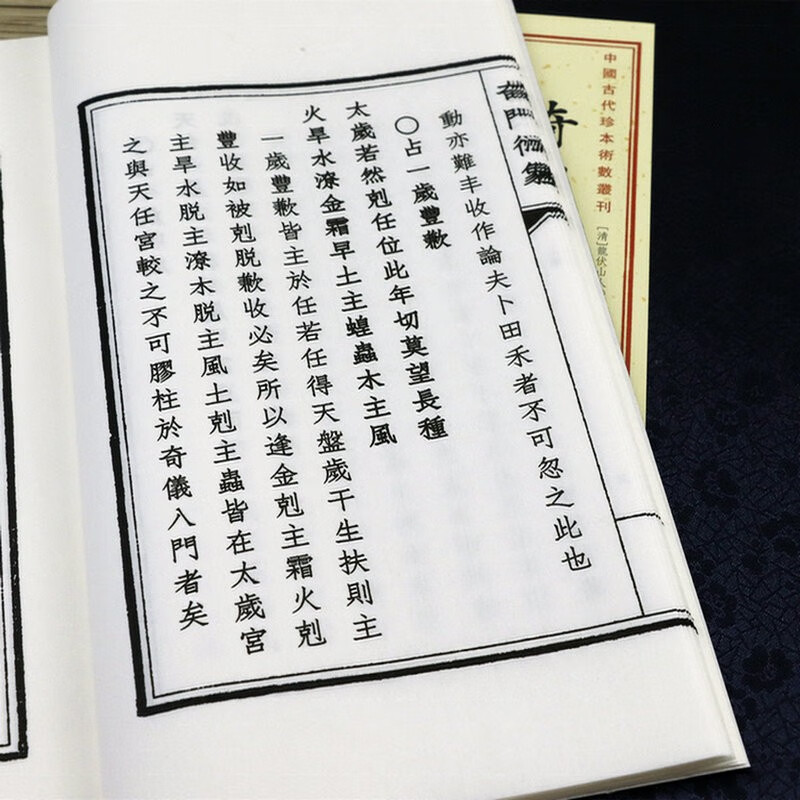 中國古代珍本術數叢刊
[清]龍伏山人
奇門衍象
動亦難丰收作論夫卜田禾者不可忽之此也
〇占一歲豐歉
太歲若然剋任位此年切莫望長種
火旱水潦金霜早土主蝗蟲木主風
一歲豐歉皆主於任若任得天盤歲干生扶則主
豐收如被剋脫歉收必矣所以逢金剋主霜火剋
主旱水脫主潦木脫主風土剋主蟲皆在太歲宮
之與天任宮較之不可膠柱於奇儀入門者矣